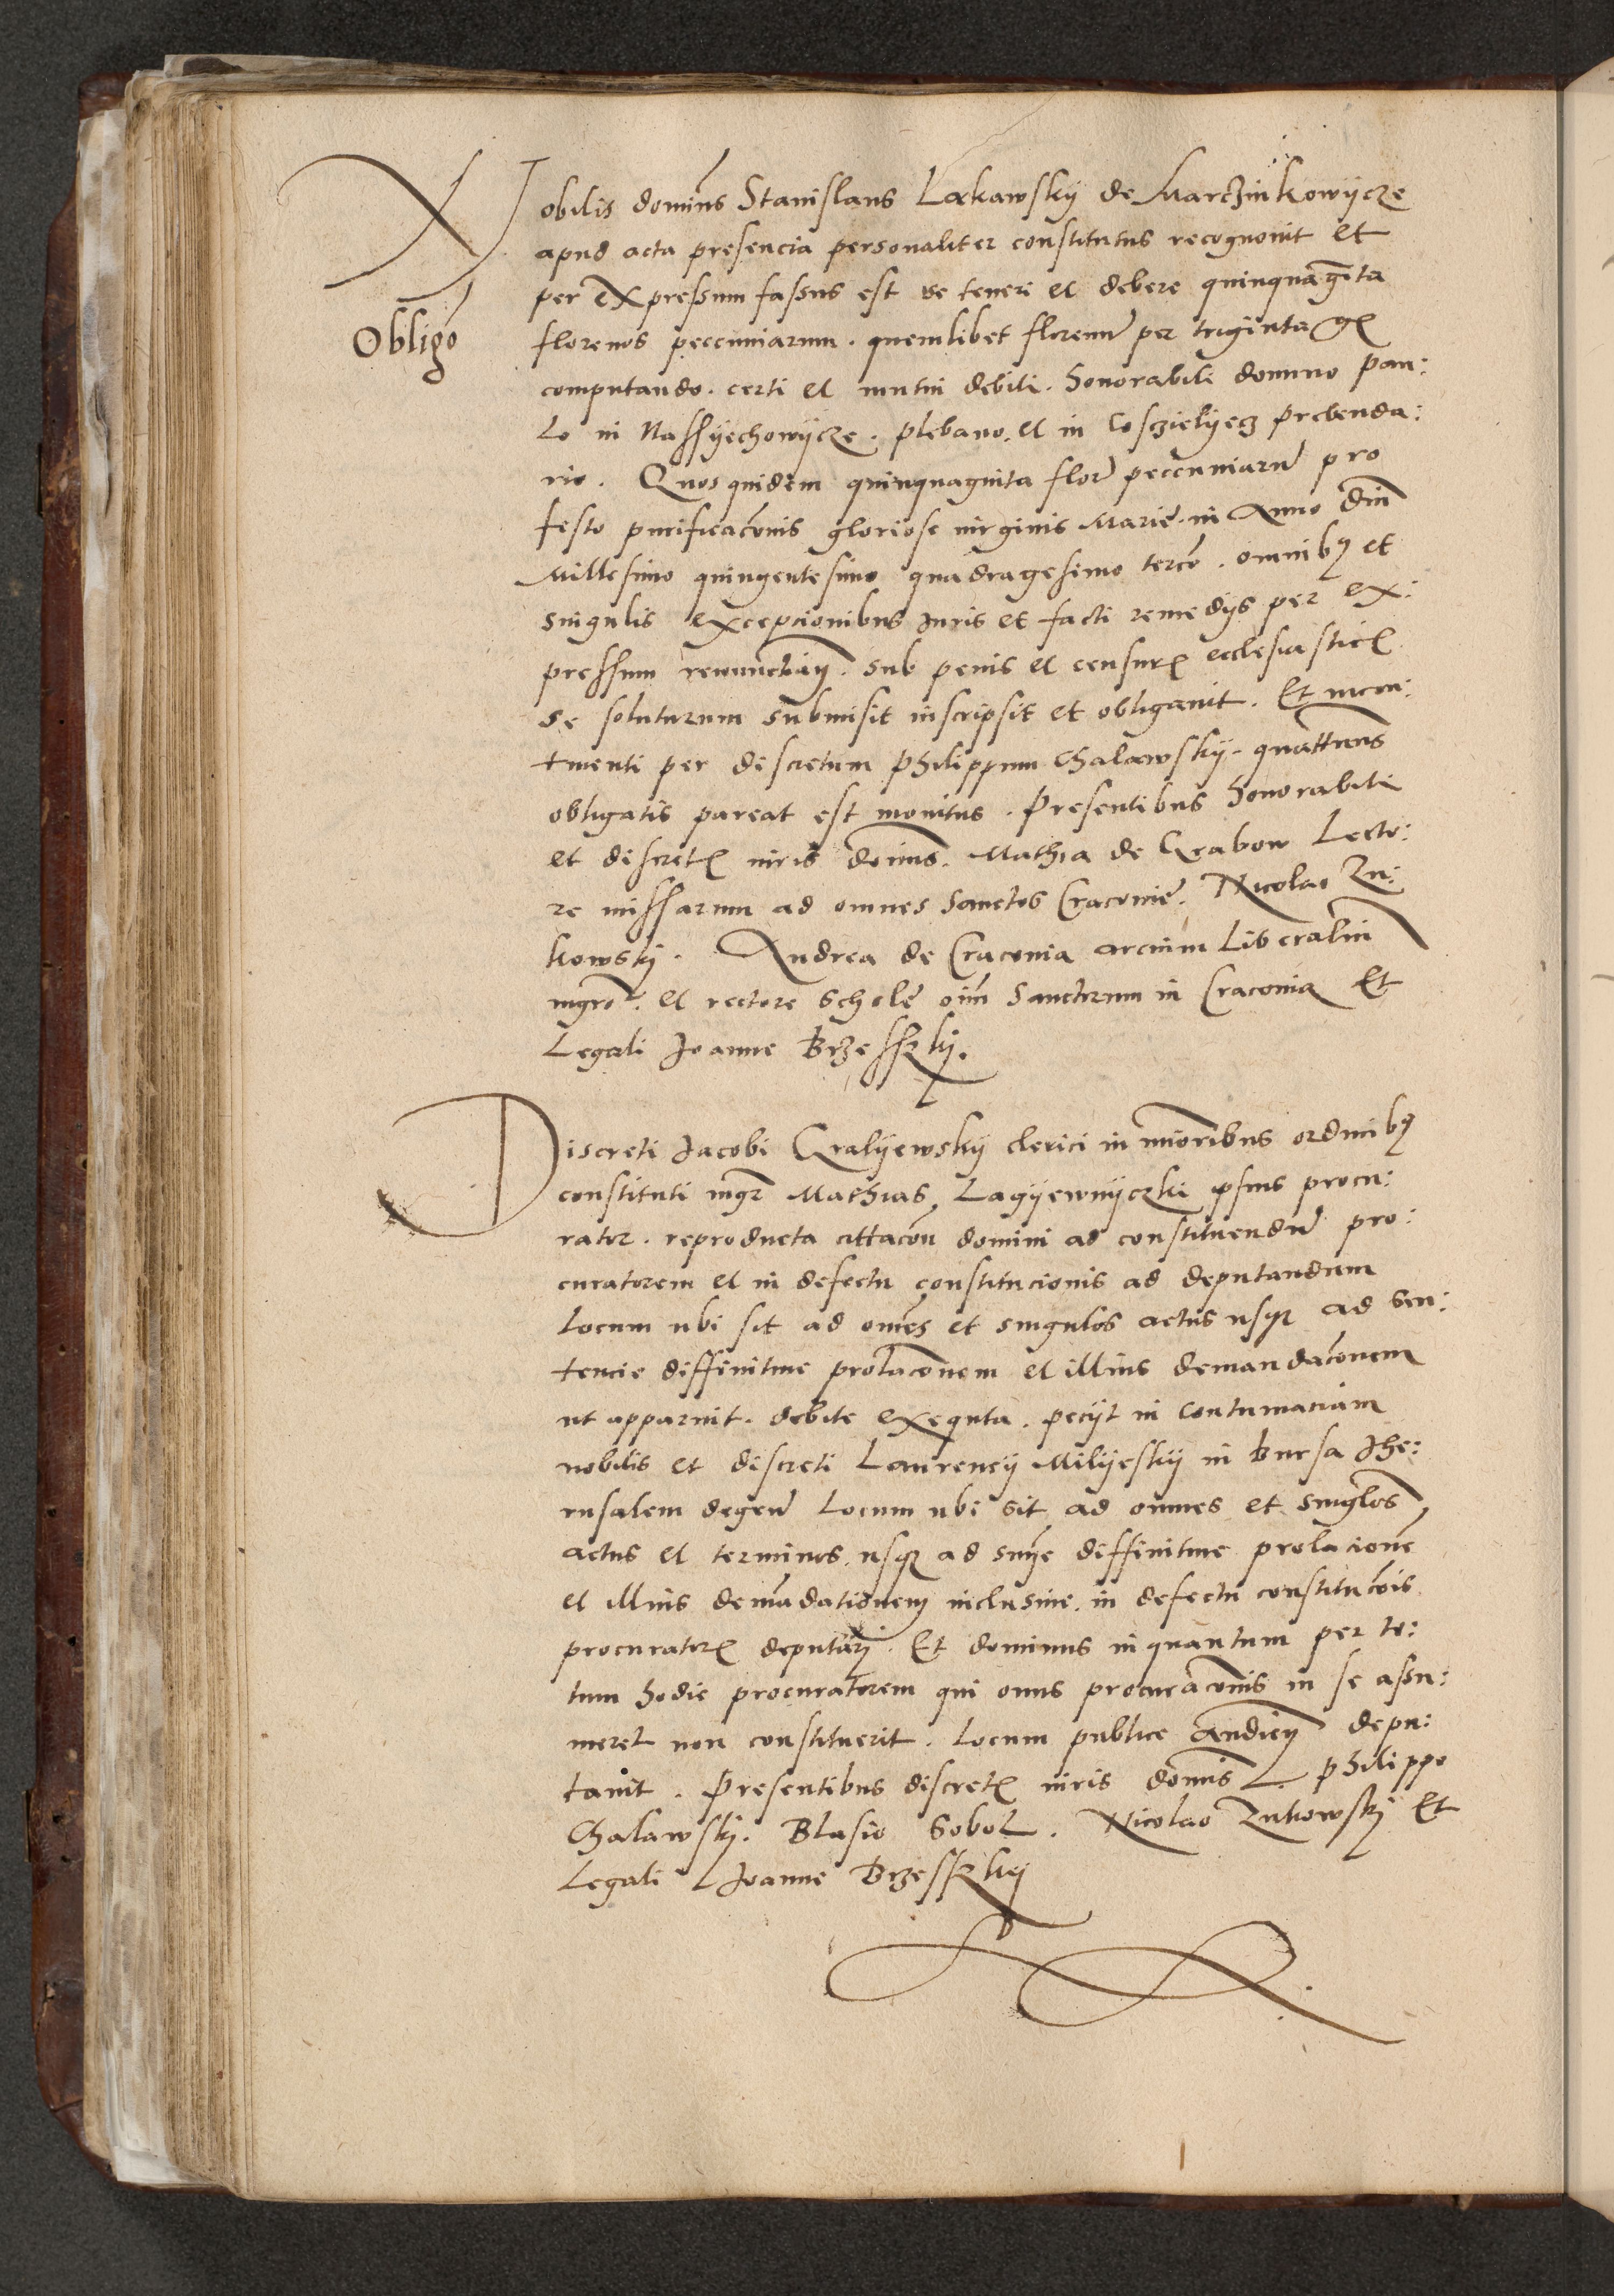 Nobilis domins Stanislaus Lακawskÿ de Marczinkowÿcze
apud acta presencia personaliter constitutus recognouit et
per expressum fassus est se tenere et debere quinquagita
Obligo
florenos peccuniarum. quemlibet florenu per triginta gr
computando. certi et mutui debiti. honorabili domino Pau:
lo in Nassÿechowÿcze. plebano. et in Cosczielÿecz prebenda:
rio. Quos quidem quinquaginta flor peccuniaru pro
festo purificaconis gloriose uirginis Marie. in Anno Dni
Millesimo quingentesimo quadragesimo tercō. omnibꝫ et
singulis excepcionibus iuris et facti remedÿs per ex:
pressum renuncian. sub penis et censuris ecclesiastic
se soluturum submisit inscripsit et obligauit. Et incon:
tinenti per discretum Philippum Chalawskÿ. quattenus
obligatis pareat est monitus. Presentibus honorabili
et discret uiris dominis. Mathia de Grabow Lecto:
re missarum ad omnes sanctos Cracouie. Nicolao Zu:
kowskÿ. Andrea de Cracouia arcium Liberaliu
mgro. et rectore schole oim sanctorum in Cracouia Et
Legali Joanne Brzesskÿ.
Discreti Jacobi Gralÿewskÿ clerici in mioribus ordinibꝫ
constituti mgr Mathias Lagÿewnÿczki ipsius procu:
rator. reproducta cittacon domini ad constituendu pro:
curatorem et in defectu constitucionis ad deputandum
Locum ubi sit ad omēs et singulos actus usqꝫ ad sen:
tencie diffinitiue prolaconem et illius demandaconem
ut apparuit. debite exequta. pecÿt in contumaciam
nobilis et discreti Laurencÿ Milÿeskÿ in bursa Jhe:
rusalem degen Locum ubi sit ad omnes et singlos
actus et terminos. usqꝫ ad snÿe diffinitiue prolacionē
et illius demādationem inclusiue. in defectu constitucois
procurator deputari. Et dominus in quantum per to:
tum hodie procuratorem qui onus procuraconis in se assu:
meret non constituerit. Locum publice audien depu:
tauit. Presentibus discret uiris domis Philippo
Chalawskÿ. Blasio Sobol. Nicolao Zukowskÿ Et
Legali Joanne Brzesskÿ